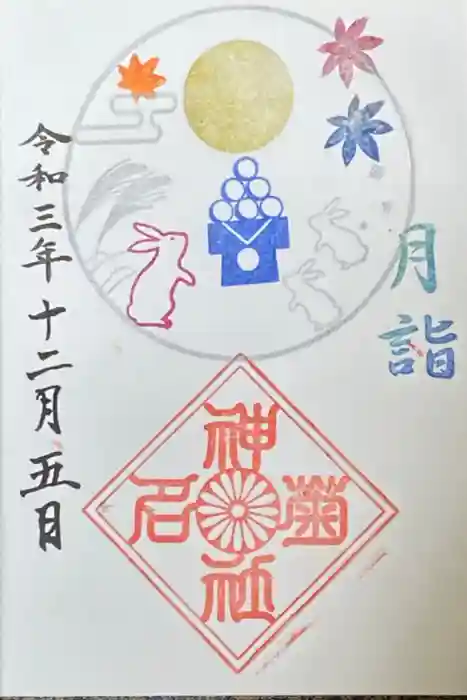 月詣
令和三年十二月五日
菊名神社